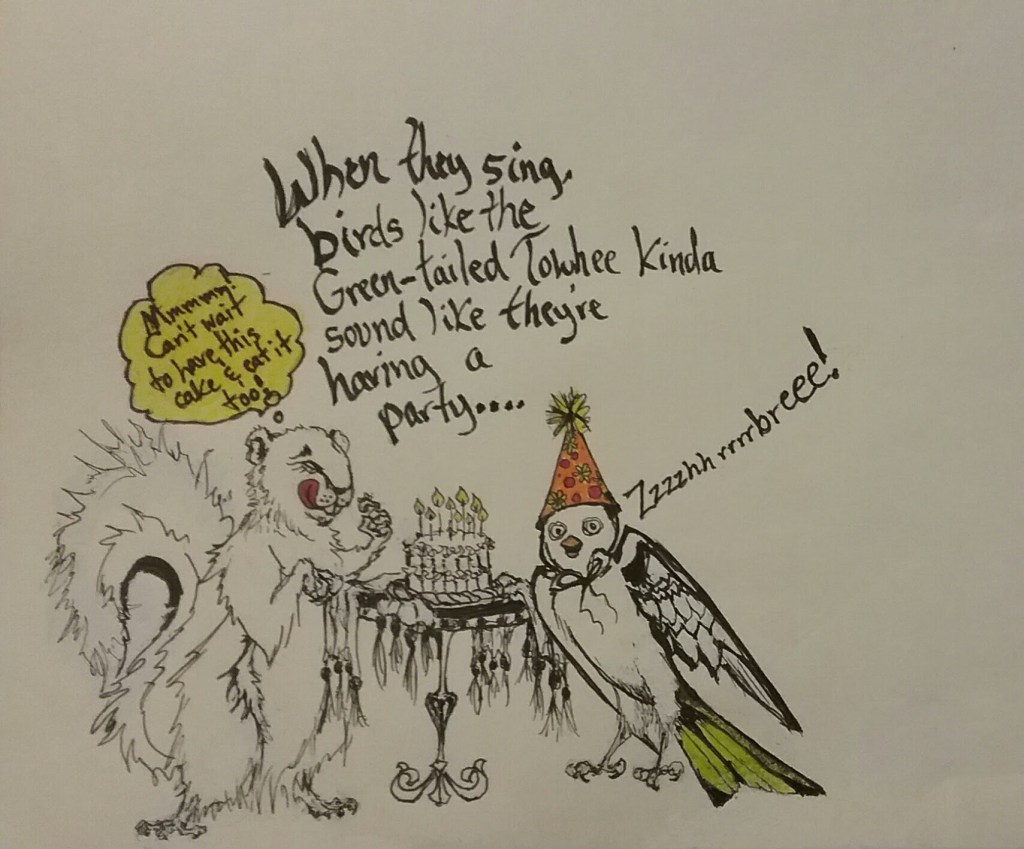 When they sing,
birds like the
Green-tailed Towhee Kinda
sound like they're
having a
party....
Mmmmm!
Can't wait
to have this
cake & eat it
too!
Zzzzhh rrrrbreee!